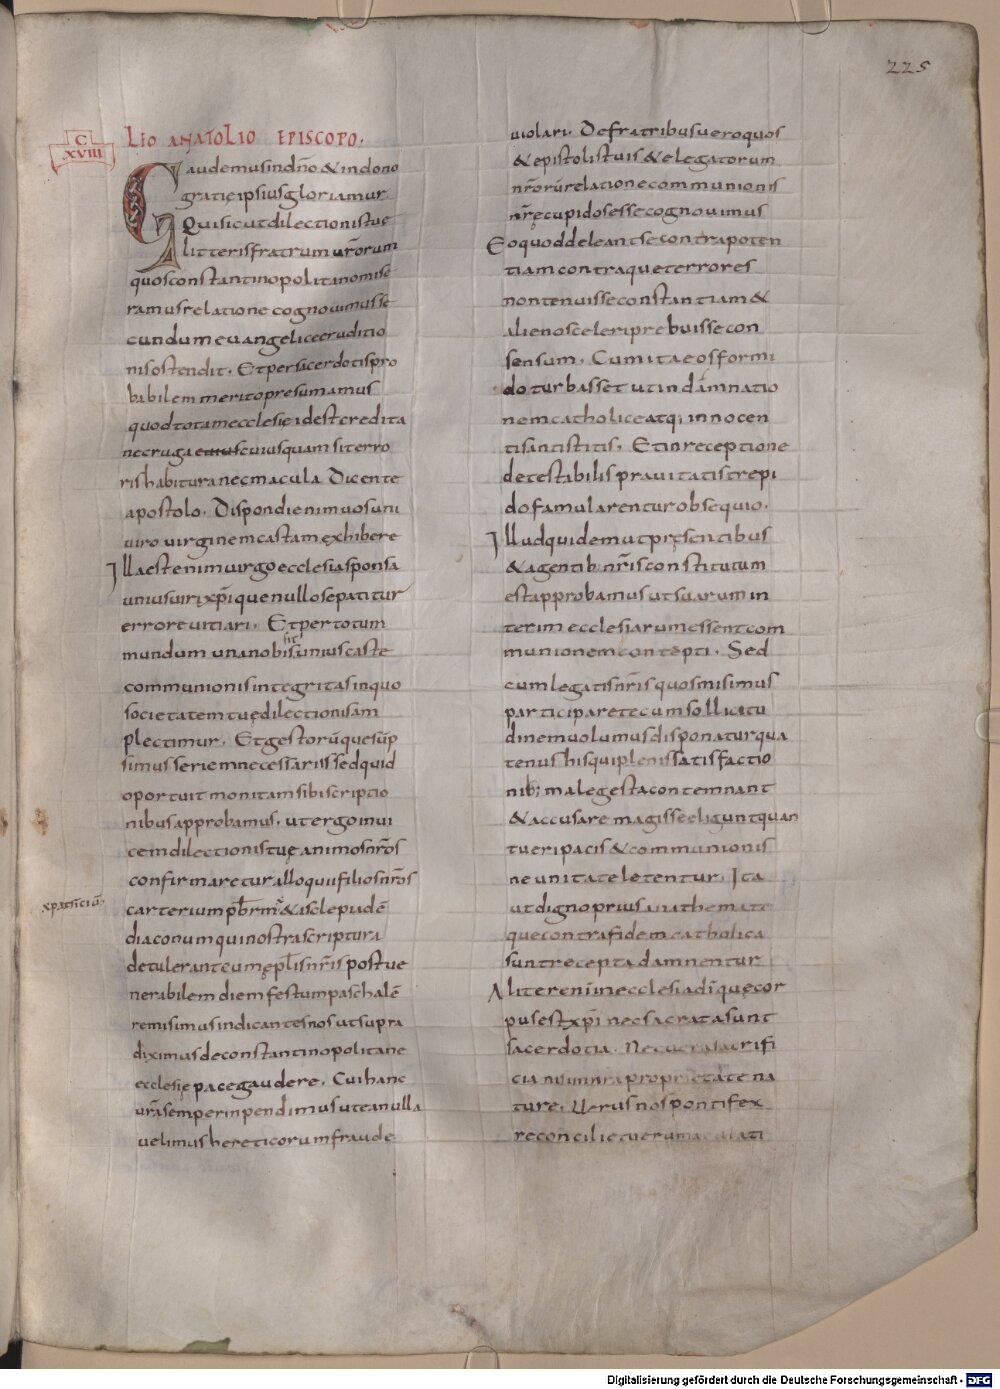 225
C
XVIII
LEO ANATOLIO EPISCOPO.
Gaudemus in dño & in dono
gratie ipsius gloriamur.
Qui sicut dilectionis tuę
litteris fratrum urõrum
quos constantinopolitano mise
ramus relatione cognouimus se
cundum euangelice eruditio
nis ostendit. Et per sacerdotis pro
babilem merito presumamus
quod totam ecclesię id est credita
nec ruga euius cuiusquam sit erro
ris habitura nec macula Dicente
apostolo. Dispondi enim uos uni
uiro uirginem castam exhibere
Illa est enim uirgo ecclesia sponsa
unius uiri xp̃i que nullo se patitur
errore uitiari. Et per totum
mundum una nobis sit unius caste
communionis integritas in quo
societatem tuę dilectionis am
plectimur. Et gestorũ que sũp
simus seriem necessariis sed quid
oportuit monitam sibi scriptio
nibus approbamus. ut ergo inui
cem dilectionis tuę animos nr̃os
confirmaretur alloquu filios nr̃os
xpatriciũ.
carterium pb̃rm & asclepiadẽ
diaconum qui nostra scriptura
detulerant cum ępl̃is nr̃is post ue
nerabilem diem festum paschalẽ
remisimus indicantes nos ut supra
diximus de constantinopolitane
ecclesię pace gaudere. Cui hanc
urãsem per inpendimus ut ea nulla
uelimus hereticorum fraude
uiolari. De fratribus uero quos
& epistolis tuis & elegatorum
nr̃orũ relatione communionis
nr̃ę cupidos esse cognouimus
Eo quod deleant se contra poten
tiam contraque terrores
non tenuisse constantiam &
alieno sceleri prebuisse con
sensum. Cum ita eos formi
do turbasset ut in dãmnatio
nem catholice atq; innocen
tis antistitis. Et in receptione
detestabilis prauitatis trepi
do famularentur obsequio.
Illud quidem ut pręsentibus
& agentib; nr̃is constitutum
est approbamus ut suarum in
terim ecclesiarum essent com
munionem contepti. Sed
cum legatis nr̃is quos misimus
participare tecum sollicitu
dinem uolumus disponatur qua
tenus his qui plenis satisfactio
nib; male gesta contemnant
& accusare magis se eligunt quan
tueri pacis & communionis
ne unitate letentur. Ita
ut digno prius anathemate
que contra fidem catholica
sunt recepta damnentur
Aliter enim ecclesia dĩ quę cor
pus est xp̃i nec sacrata sunt
sacerdotia. Nec uera sacrifi
cia nisi in nr̃a proprietate na
ture. Uerus nos pontifex
reconciliet uerum aculati
Digitalisierung gefördert durch die Deutsche Forschungsgemeinschaft - DFG